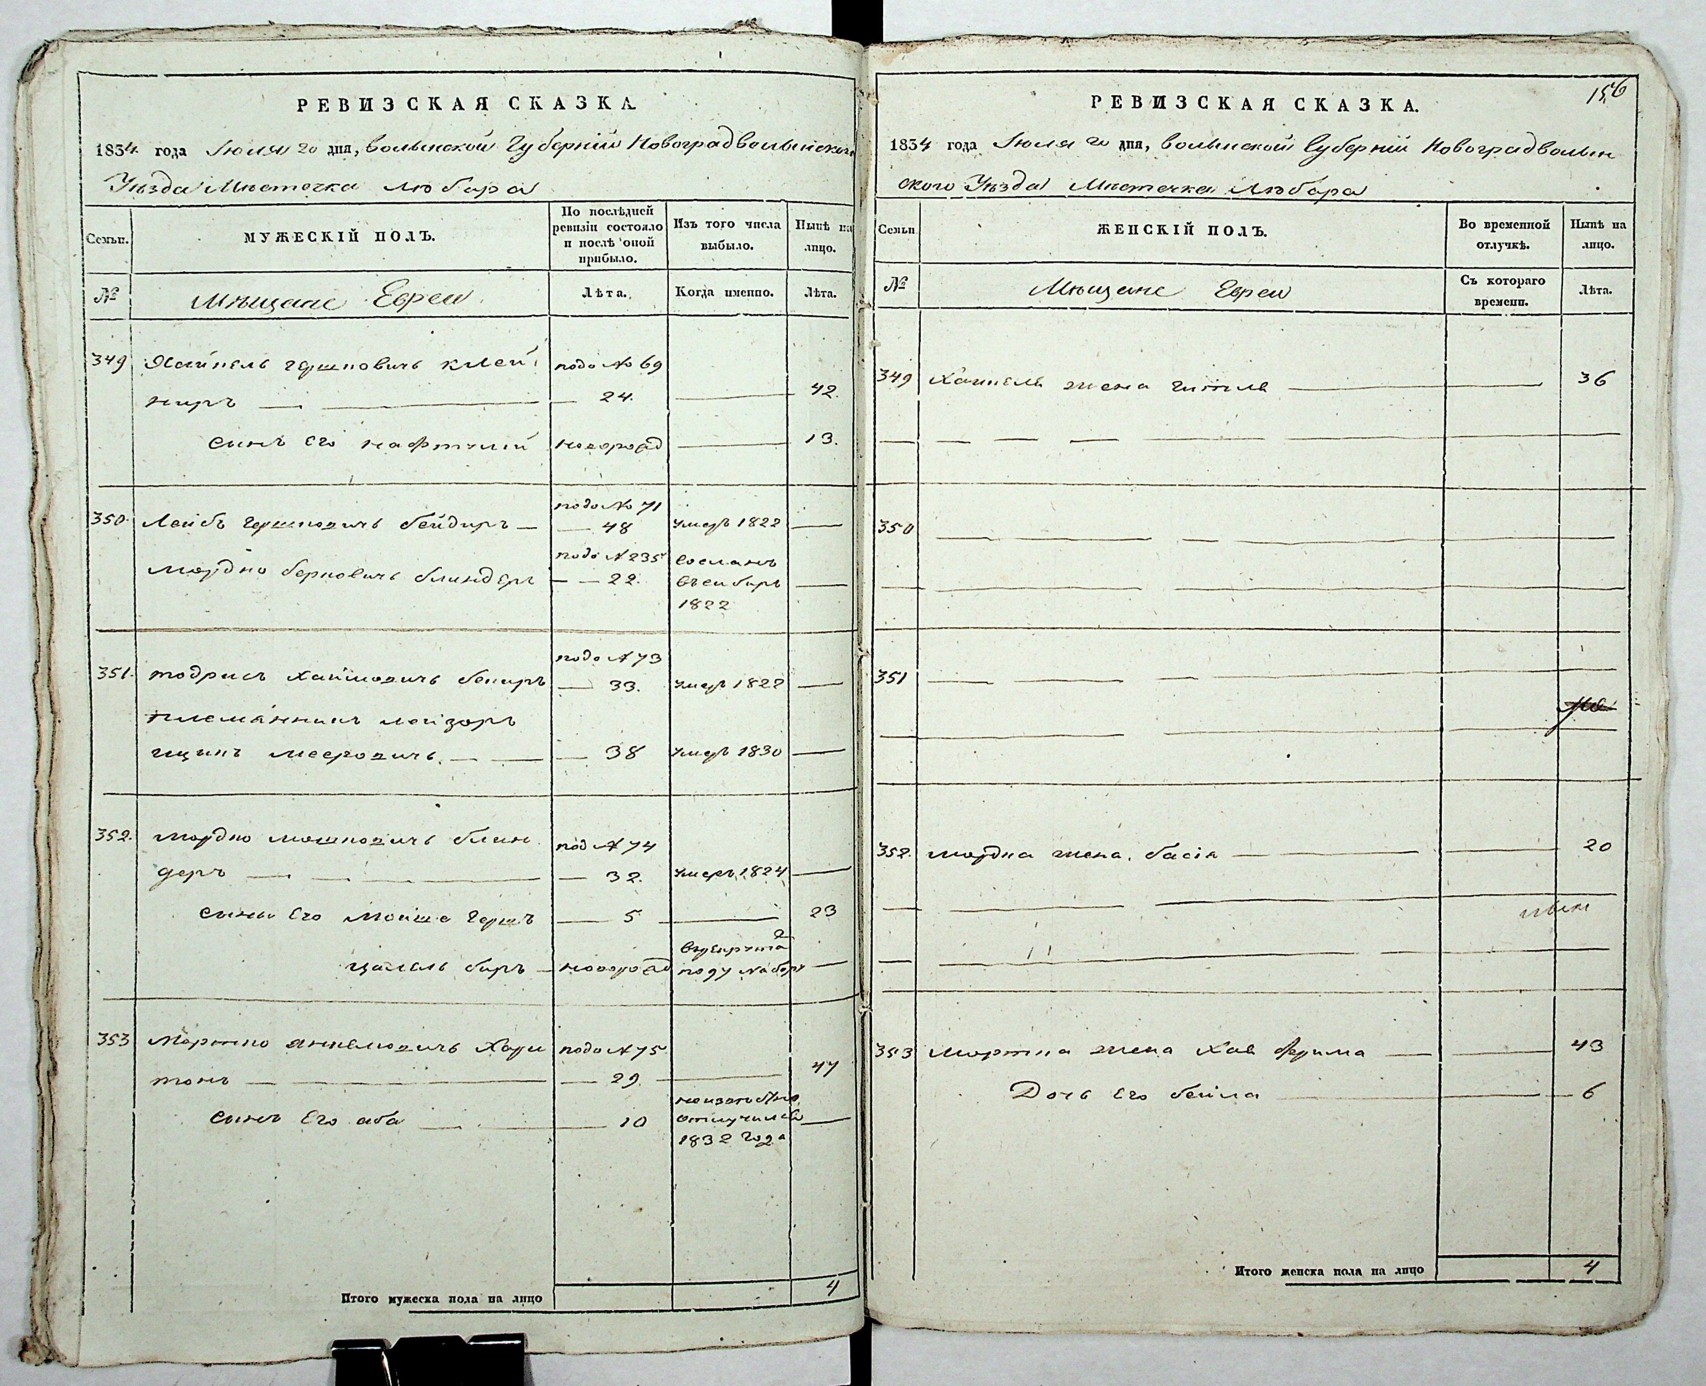 РЕВИЗСКАЯ СКАЗКА.
1834 года Июля 20 дня, Волынской Губерніи Новоградволынского
Уѣзда Мѣстечка Любара
Семьи.
МУЖЕСКІЙ ПОЛЪ.
По послѣдней ревизіи состояло и послѣ оной прибыло.
Изъ того числа выбыло.
Нынѣ на лицо.
№
Мѣщане Евреи
Лѣта.
Когда именно.
Лѣта.
349 Хаймель Гершковичь Клей подъ № 69
неръ — 24. — 42.
сынъ его Нафтулий новорожд — 13.
350. Лейбъ Гершковичь — подъ № 71 — 48 умеръ 1822 —
Мордко Берковичь Блиндеръ подъ № 235 — 22. сосланъ
въ сибирь —
1822
351. Тодрисъ Хаймовичь подъ № 73 — 33. умеръ 1822 —
племянникъ Лейзоръ
Ицикъ Мееровичь — 38 умеръ 1830 —
352. Мордко Мошковичь Блин под № 74
деръ — 32. умеръ 1824 —
сыны его Мойше Гершъ — 5 — 23
Беръ — новорожд
по 97 набору —
353 Мортко Янкелювичь Хари подъ № 75
тонъ — 29. — 47
сынъ его Аба — 10 неизвестно
отлучился —
1832 года
Итого мужеска пола на лицо 4
РЕВИЗСКАЯ СКАЗКА.
156
1834 года Июля 20 дня, Волынской Губерніи Новоградволын
ского Уѣзда Мѣстечка Любара
Семьи
ЖЕНСКІЙ ПОЛЪ.
Во временной отлучкѣ.
Нынѣ на лицо.
№
Мѣщане Евреи
Съ котораго времени.
Лѣта.
349 Хаймеля жена Гитля — 36
350
351
352. Мордка жена Бася — 20
353 Мортка жена Хая Фрима — 43
Дочь его Бейла — 6
Итого женска пола на лицо 4